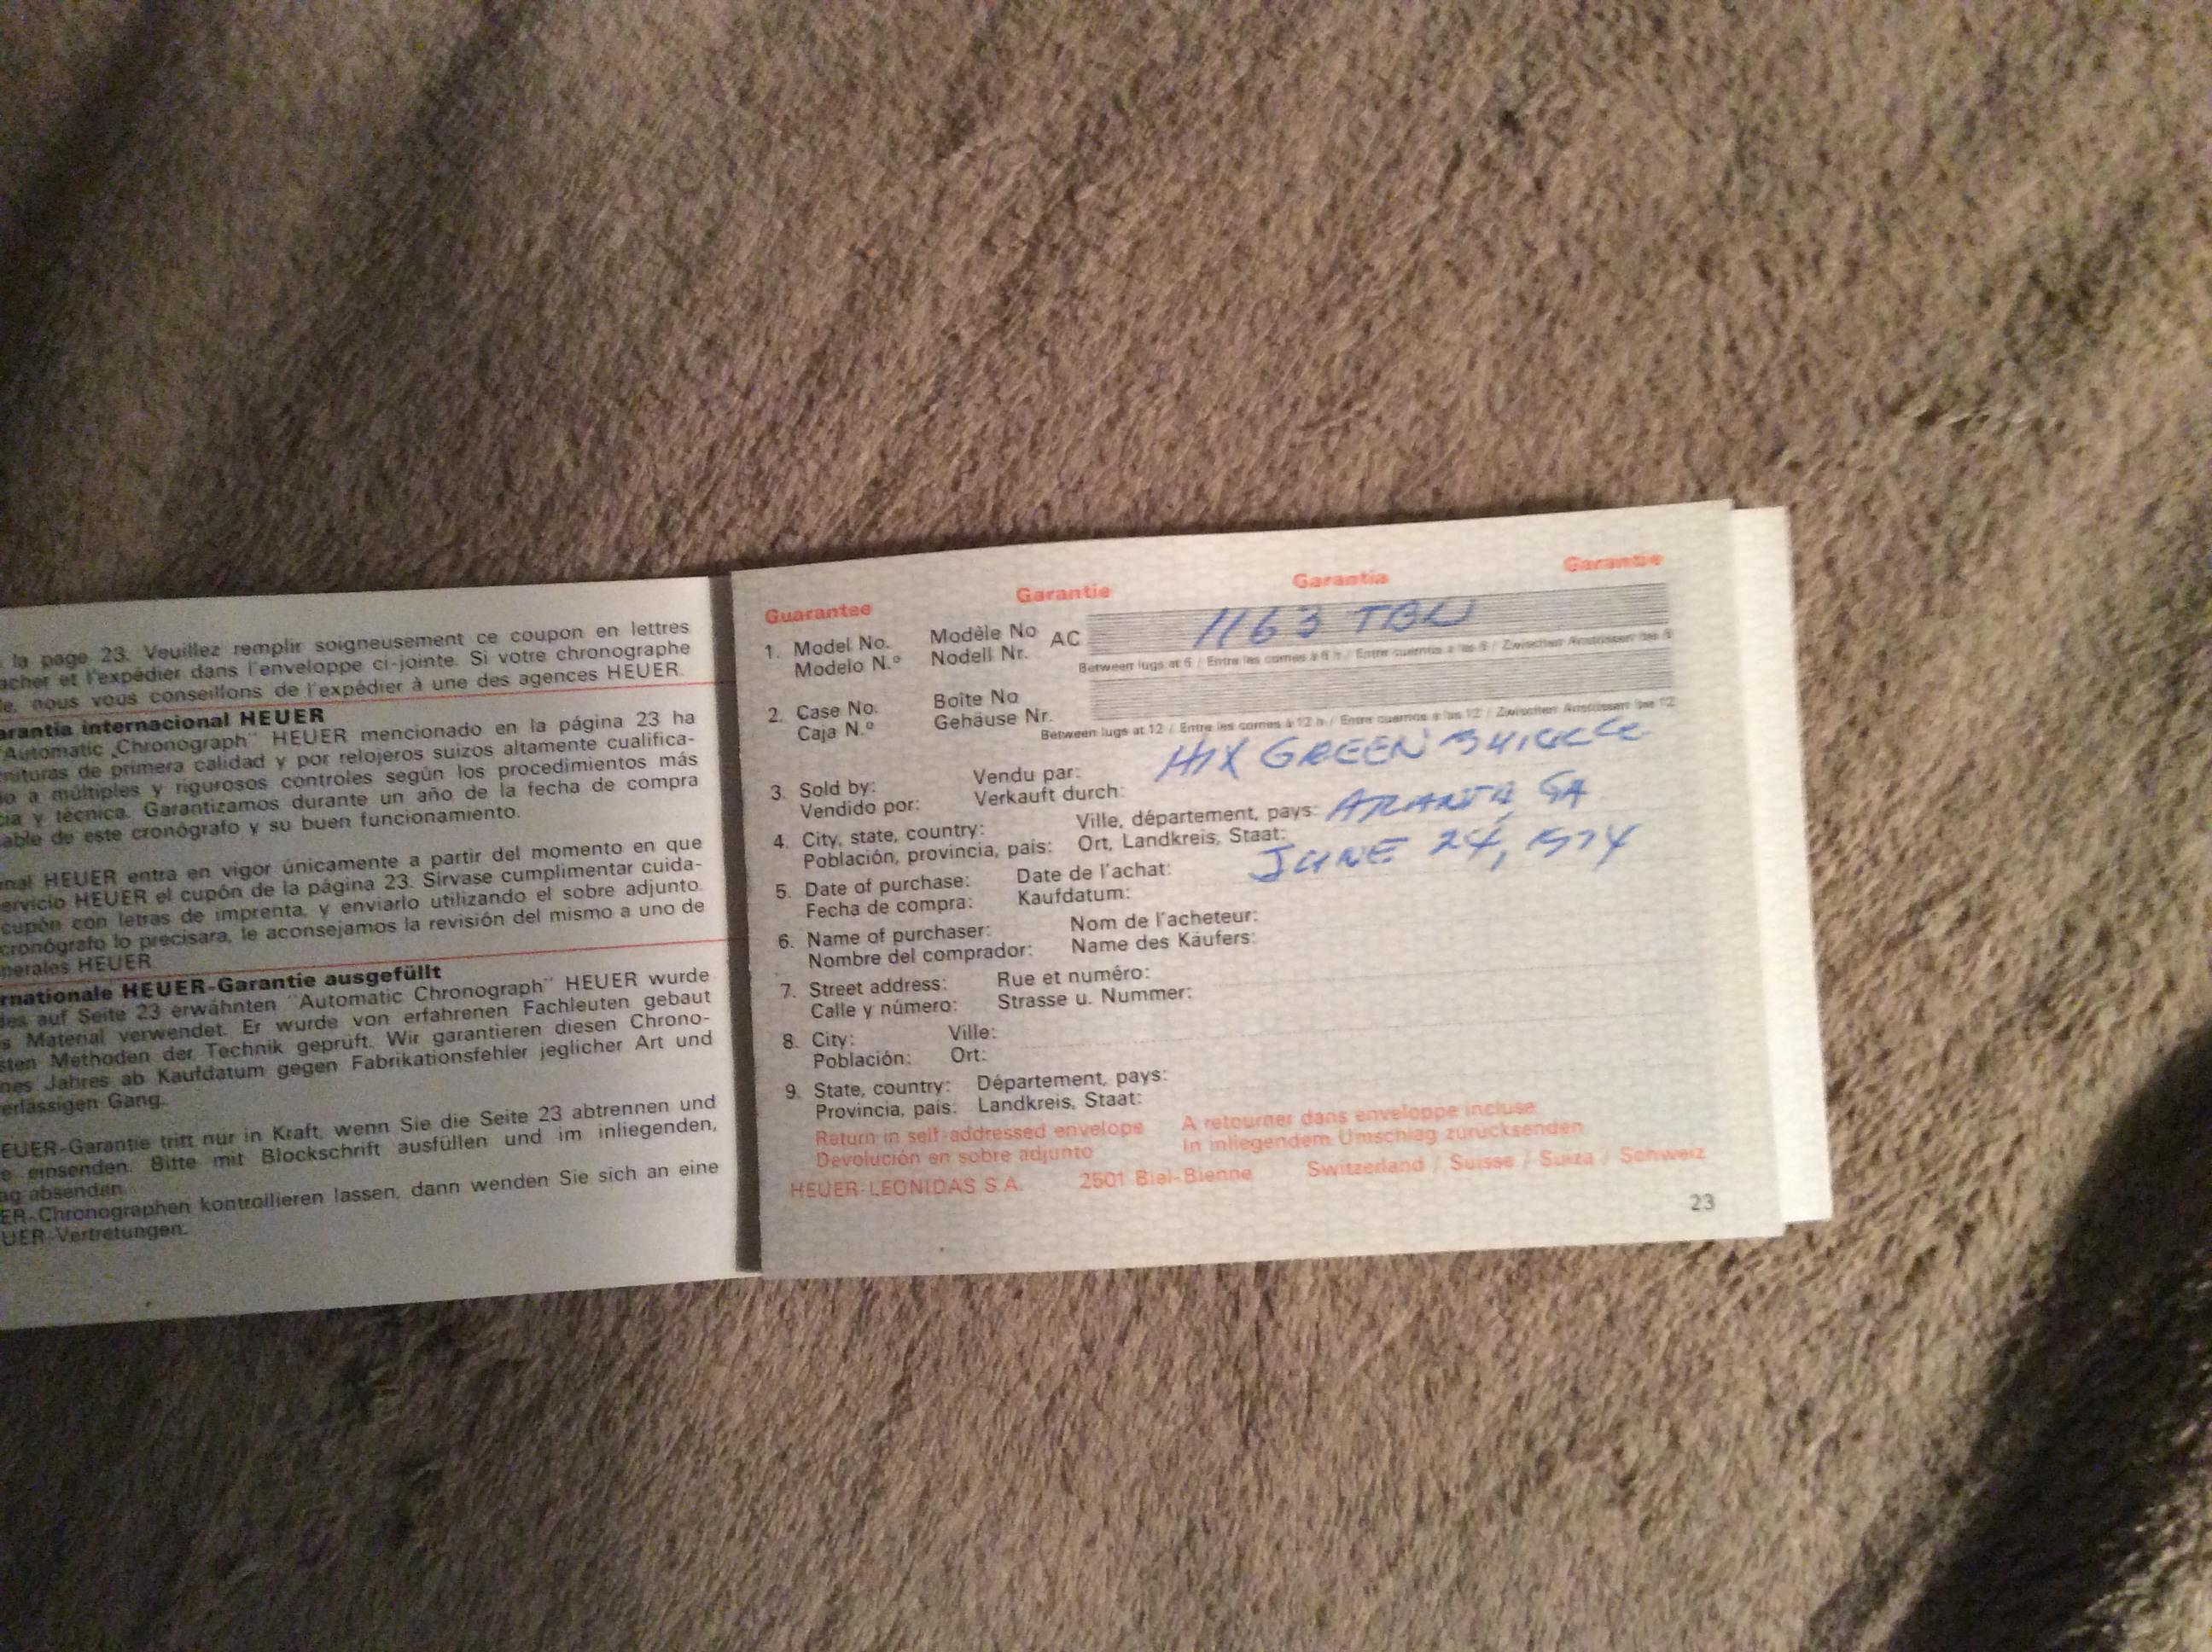 la page 23. Veuillez remplir soigneusement ce coupon en lettres
acher et l'expédier dans l'enveloppe ci-jointe. Si votre chronographe
le, nous vous conseillons de l'expédier à une des agences HEUER.
arantia internacional HEUER
"Automatic Chronograph" HEUER mencionado en la página 23 ha
nituras de primera calidad y por relojeros suizos altamente cualifica-
o a múltiples y rigurosos controles según los procedimientos más
cia y técnica. Garantizamos durante un año de la fecha de compra
able de este cronógrafo y su buen funcionamiento.
nal HEUER entra en vigor únicamente a partir del momento en que
ervicio HEUER el cupón de la página 23. Sirvase cumplimentar cuida-
cupón con letras de imprenta, y enviarlo utilizando el sobre adjunto.
cronógrafo lo precisara, le aconsejamos la revisión del mismo a uno de
nerales HEUER
rnationale HEUER-Garantie ausgefüllt
des auf Seite 23 erwähnten "Automatic Chronograph" HEUER wurde
s Material verwendet. Er wurde von erfahrenen Fachleuten gebaut
sten Methoden der Technik geprüft. Wir garantieren diesen Chrono-
nes Jahres ab Kaufdatum gegen Fabrikationsfehler jeglicher Art und
erlässigen Gang.
EUER-Garantie tritt nur in Kraft, wenn Sie die Seite 23 abtrennen und
e einsenden. Bitte mit Blockschrift ausfüllen und im inliegenden,
ag absenden.
ER-Chronographen kontrollieren lassen, dann wenden Sie sich an eine
UER-Vertretungen.
Guarantee Garantie Garantia Garantie
1. Model No. Modèle No AC 1163 TBL
Modelo N.º Nodell Nr.
Between lugs at 6 / Entre les cornes à 6 h / Entre cuernos a las 6 / Zwischen Anstössen bei 6
2. Case No. Boîte No
Caja N.º Gehäuse Nr.
Between lugs at 12 / Entre les cornes à 12 h / Entre cuernos a las 12 / Zwischen Anstössen bei 12
3. Sold by: Vendu par: HIX GREEN BUICK
Vendido por: Verkauft durch:
4. City, state, country: Ville, département, pays: ATLANTA, GA
Población, provincia, pais: Ort, Landkreis, Staat:
5. Date of purchase: Date de l'achat: JUNE 24, 1974
Fecha de compra: Kaufdatum:
6. Name of purchaser: Nom de l'acheteur:
Nombre del comprador: Name des Käufers:
7. Street address: Rue et numéro:
Calle y número: Strasse u. Nummer:
8. City: Ville:
Población: Ort:
9. State, country: Département, pays:
Provincia, pais: Landkreis, Staat:
Return in self-addressed envelope A retourner dans enveloppe incluse
Devolución en sobre adjunto In inliegendem Umschlag zurücksenden
HEUER-LEONIDAS S.A. 2501 Biel-Bienne Switzerland / Suisse / Suiza / Schweiz
23